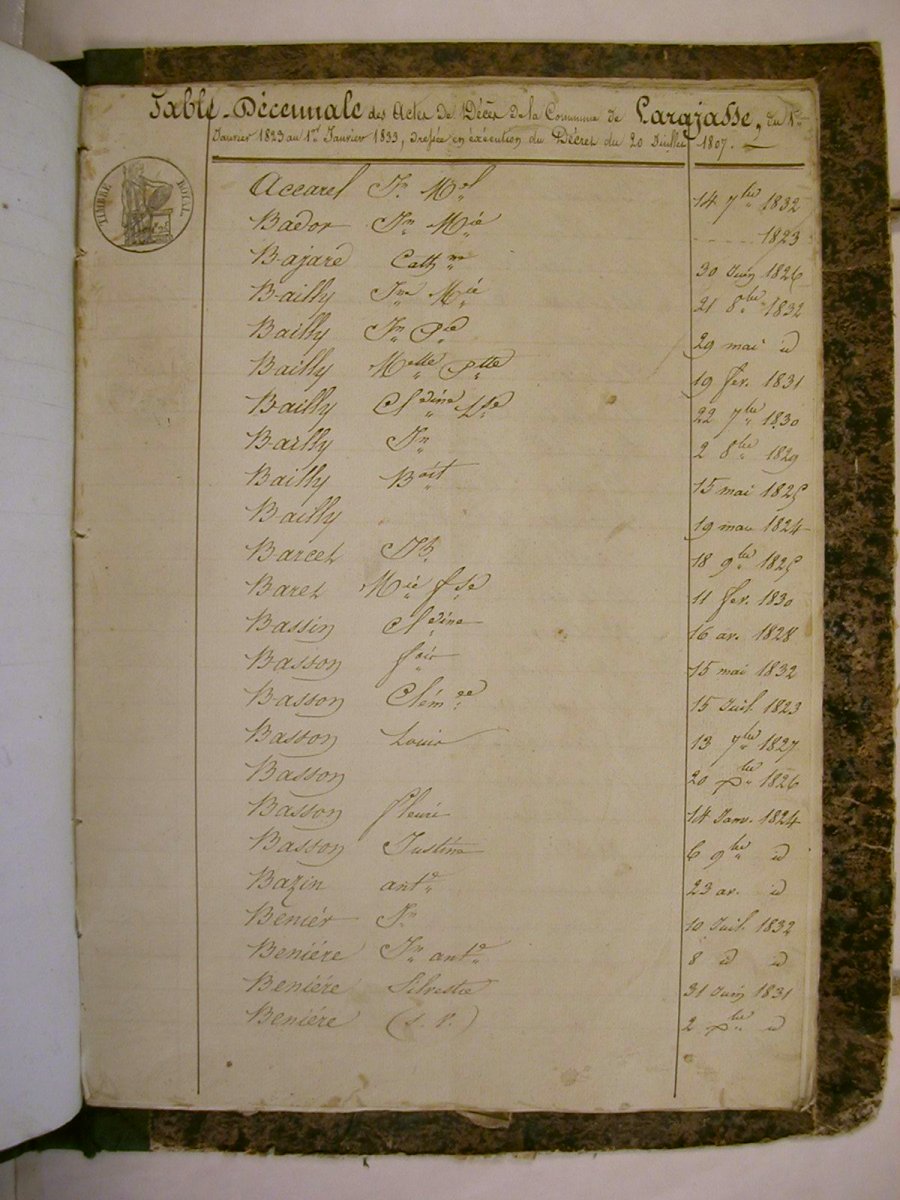 Table Décennale des Actes de Décès de la Commune de Largjasse, du 1er
Janvier 1823 au 1er Janvier 1833, dressée en exécution du Décret du 20 Juillet 1807.
TIMBRE ROYAL
Accarel Jn Mel 14 7bre 1832
Bador Jn Mie 1823
Bajard Cathne 30 Juin 1826
Bailly Jne Mie 21 8bre 1832
Bailly Jn Pre 29 mai id
Bailly Mette Ptte 19 fev. 1831
Bailly Cldine 22 7bre 1830
Bailly Jn 2 8bre 1829
Bailly Boit 15 mai 1825
Bailly 19 mau 1824
Barcet JB. 18 9bre 1825
Baret Mie fse 11 fev. 1830
Bassin Cldine 16 av. 1828
Basson fois 15 mai 1832
Basson Clémce 15 Juil. 1823
Basson Louis 13 7bre 1827
Basson 20 xbre 1826
Basson fleurie 14 Janv. 1824
Basson Justine 6 9bre id
Bazin ante 23 av. id
Beniér Jn 10 Juil. 1832
Beniére Jn ante 8 id id
Beniére Silvestre 31 Juin 1831
Beniére (s. P.) 2 xbre id